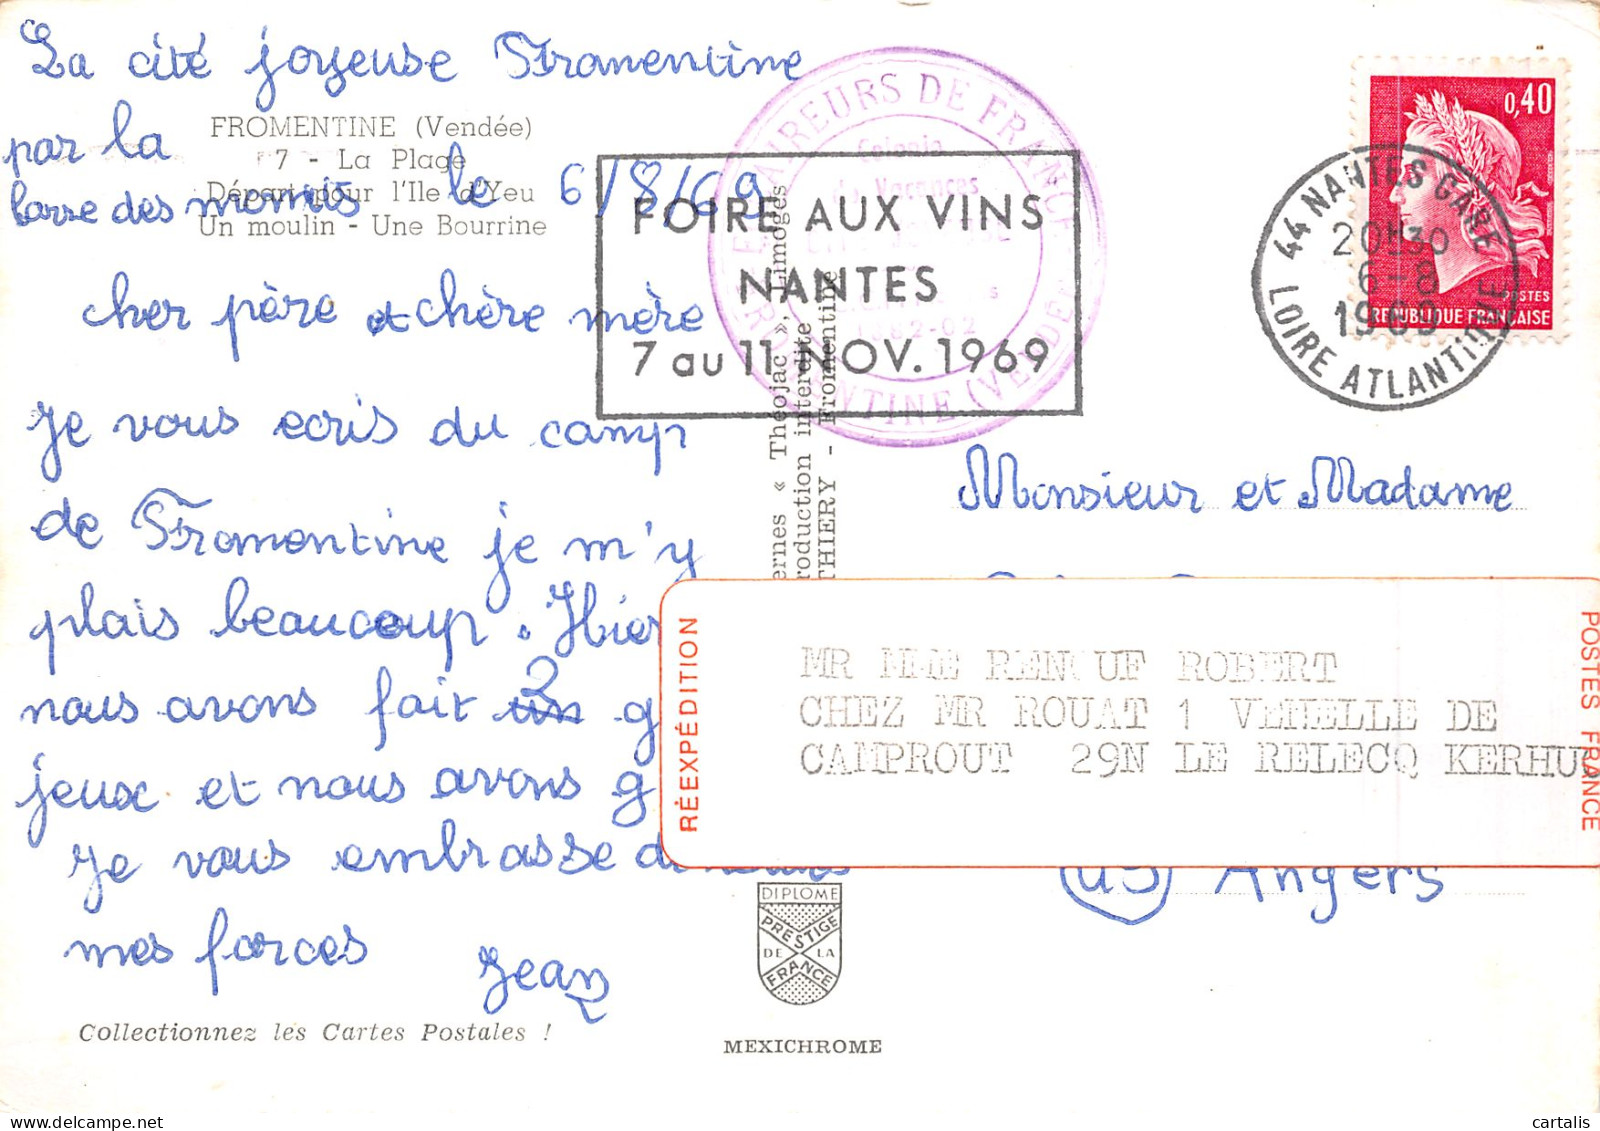 La cité joyeuse Fromentine
par la
barre des monts le 6/8/69
FROMENTINE (Vendée)
7 - La Plage
Départ pour l'Ile d'Yeu
Un moulin - Une Bourrine
cher père et chère mère
Je vous ecris du camp
de Fromentine je m'y
plais beaucoup. Hier
nous avons fait 2 g
jeux et nous avons g
Je vous embrasse de
mes forces
Jean
Collectionnez les Cartes Postales !
ECLAIREURS DE FRANCE
Colonie
de Vacances
FROMENTINE (VENDEE)
FOIRE AUX VINS
NANTES
7 au 11 NOV. 1969
ernes « Théojac », Limoges
roduction interdite
THIERY - Fromentine
44 NANTES GARE
20H30
6-8
1969
LOIRE ATLANTIQUE
0,40
POSTES
REPUBLIQUE FRANÇAISE
Monsieur et Madame
RÉEXPÉDITION
MR MME RENOUF ROBERT
CHEZ MR ROUAT 1 VENELLE DE
CAMPROUT 29N LE RELECQ KERHUO
POSTES FRANCE
49 Angers
DIPLOME
PRESTIGE
DE LA
FRANCE
MEXICHROME
cartalis